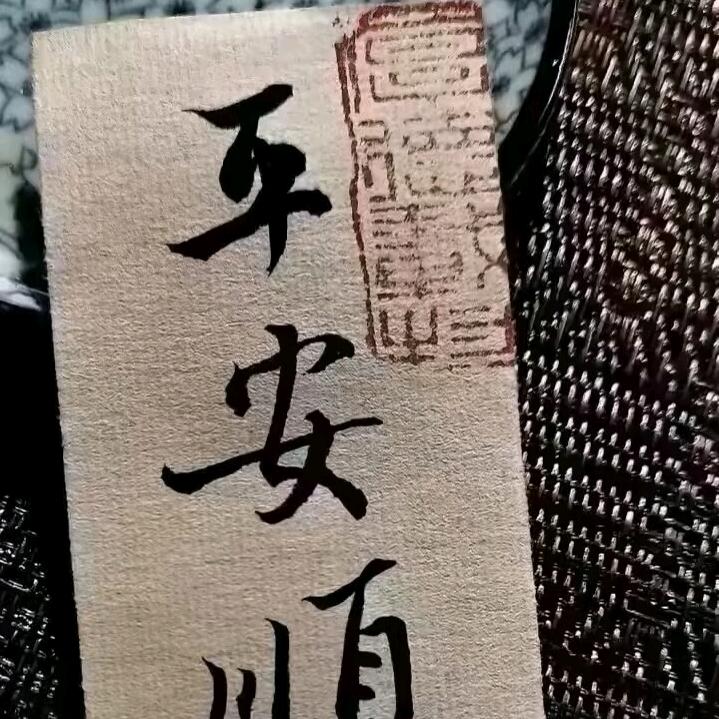 平安順